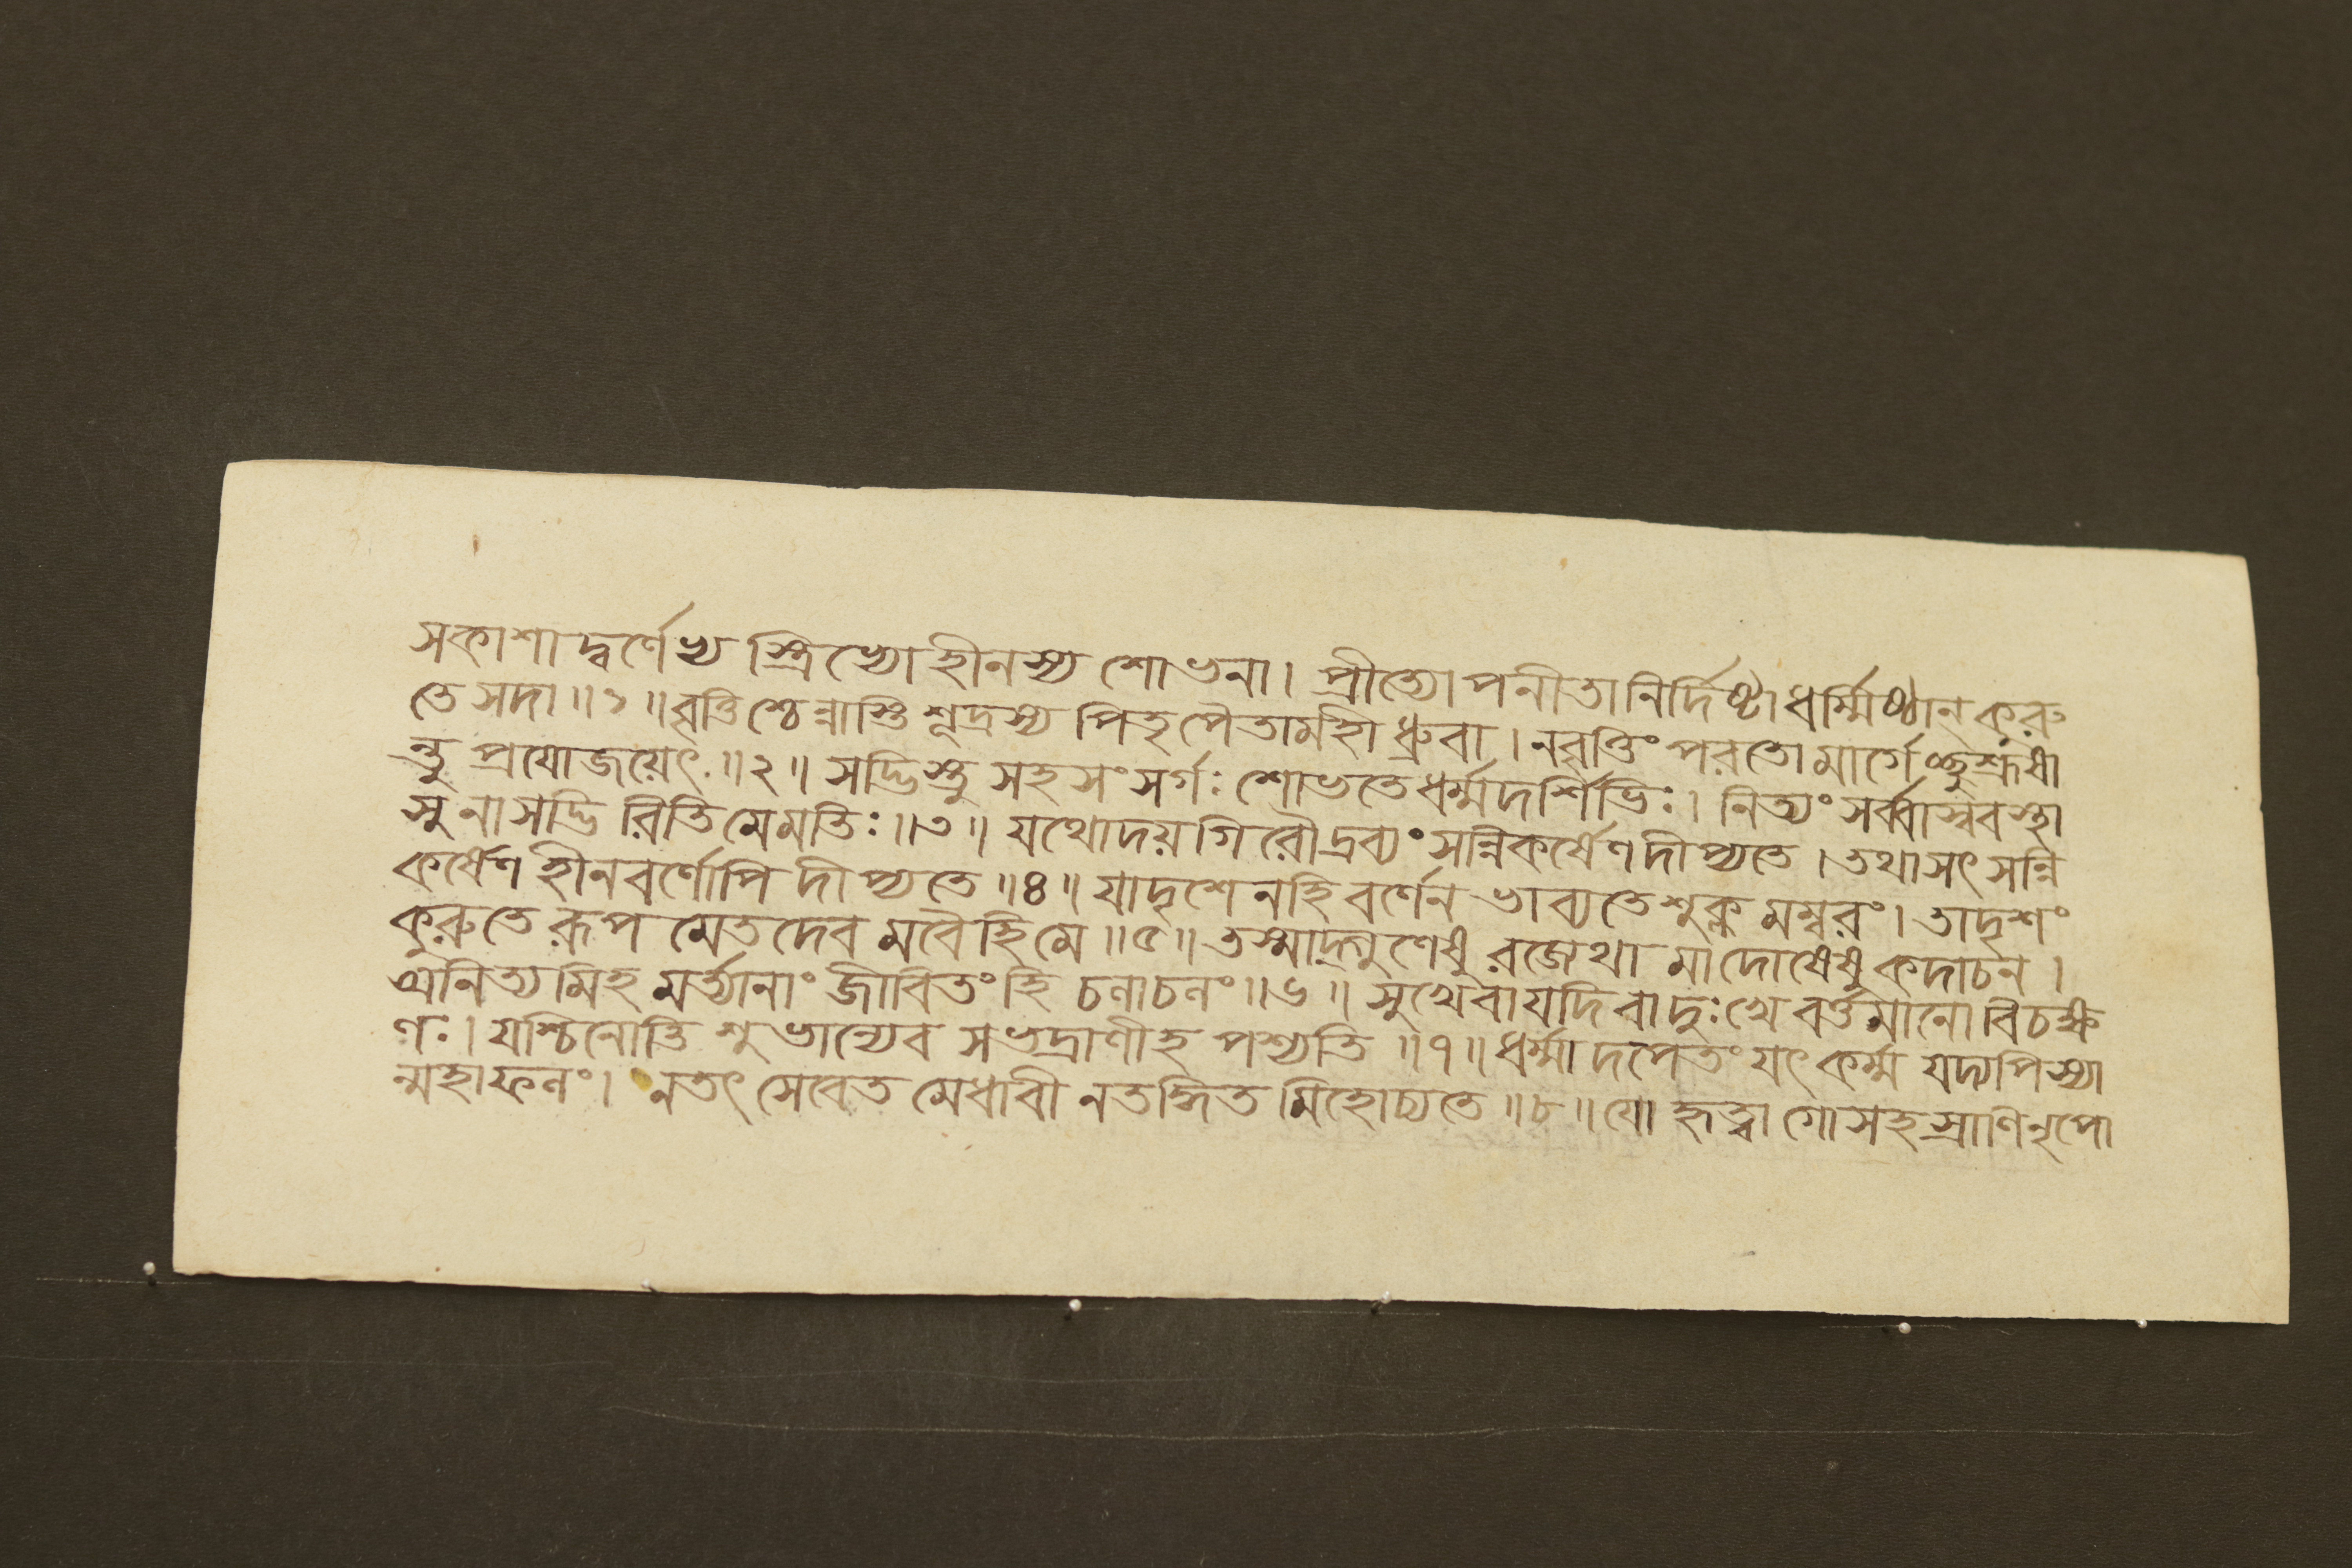 সকাশাদ্বর্ণেভ্য স্ত্রিভ্যোহীনস্য শোভনা। প্রীত্যোপনীতানির্দিষ্টাধর্ম্মিষ্ঠান্ কুরু
তে সদা॥১॥বৃত্তিশ্চেন্নাস্তি শূদ্রস্য পিতৃপৈতামহী ধ্রুবা। নবৃত্তিং পরতোমার্গেচ্ছুশ্রূষা
ন্তু প্রযোজয়েৎ॥২॥ সদ্ভিস্তু সহ সংসর্গঃ শোভতেধর্ম্মদর্শিভিঃ। নিত্যং সর্ব্বাস্ববস্থা
সু নাসদ্ভি রিতিমেমতিঃ॥৩॥ যথোদয়গিরৌদ্রব্যং সন্নিকর্ষেণদীপ্যতে। তথাসৎসন্নি
কর্ষেণ হীনবর্ণোপি দীপ্যতে॥৪॥ যাদৃশেনহি বর্ণেন ভাব্যতেশুক্ল মম্বরং। তাদৃশং
কুরুতে রূপ মেতদেব মবৈহিমে॥৫॥ তস্মাদ্গুণেষু রজেথা মাদোষেষু কদাচন।
অনিত্যমিহ মর্ত্যানাং জীবিতংহি চলাচলং॥৬॥ সুখেবাযদিবাদুঃখে বর্ত্তমানোবিচক্ষ
ণঃ। যশ্চিনোতি শুভান্যেব সভদ্রাণীহ পশ্যতি॥৭॥ধর্ম্মাদপেতংযৎকর্ম্ম যদ্যপিস্যা
ন্মহাফলং। নতৎ সেবেত মেধাবী নতদ্ধিত মিহোচ্যতে॥৮॥যো হৃত্বাগোসহস্রাণিনৃপো